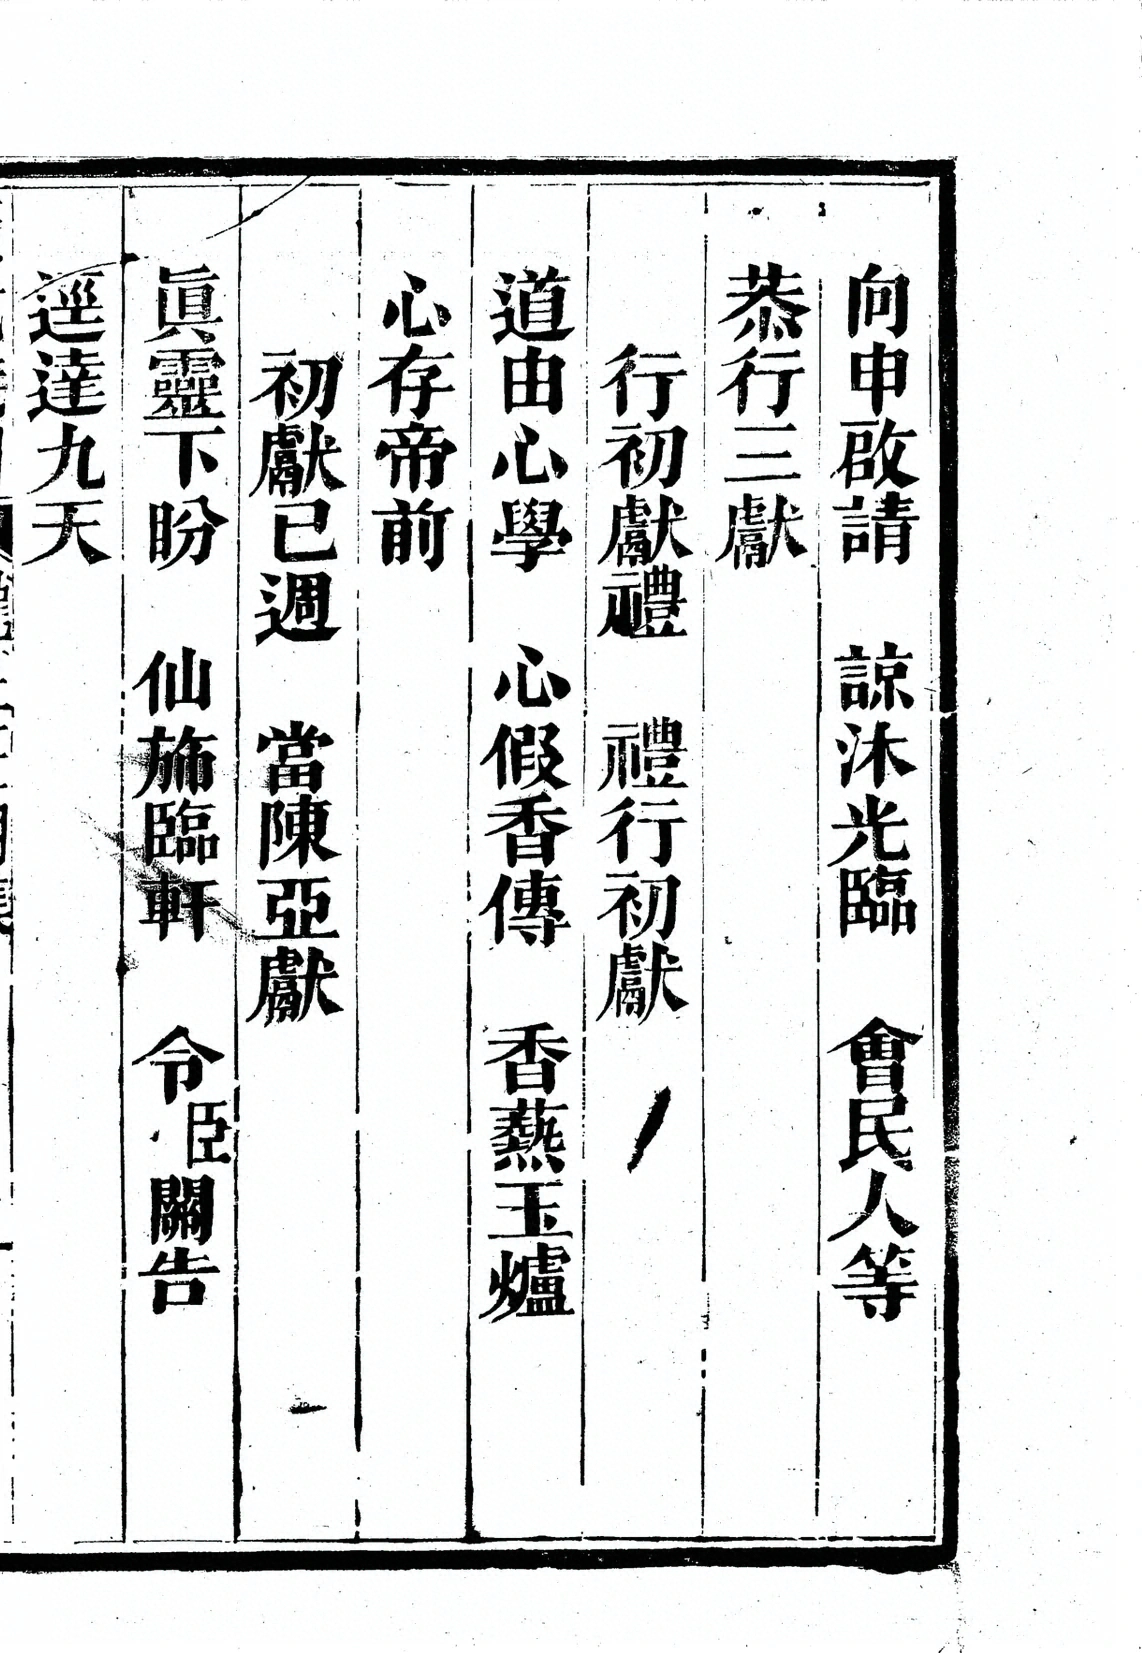 向申啟請　諒沐光臨　會民人等
恭行三獻
行初獻禮　禮行初獻
道由心學　心假香傳　香爇玉爐
心存帝前
初獻已週　當陳亞獻
眞靈下盼　仙斾臨軒　令臣關告
逕達九天